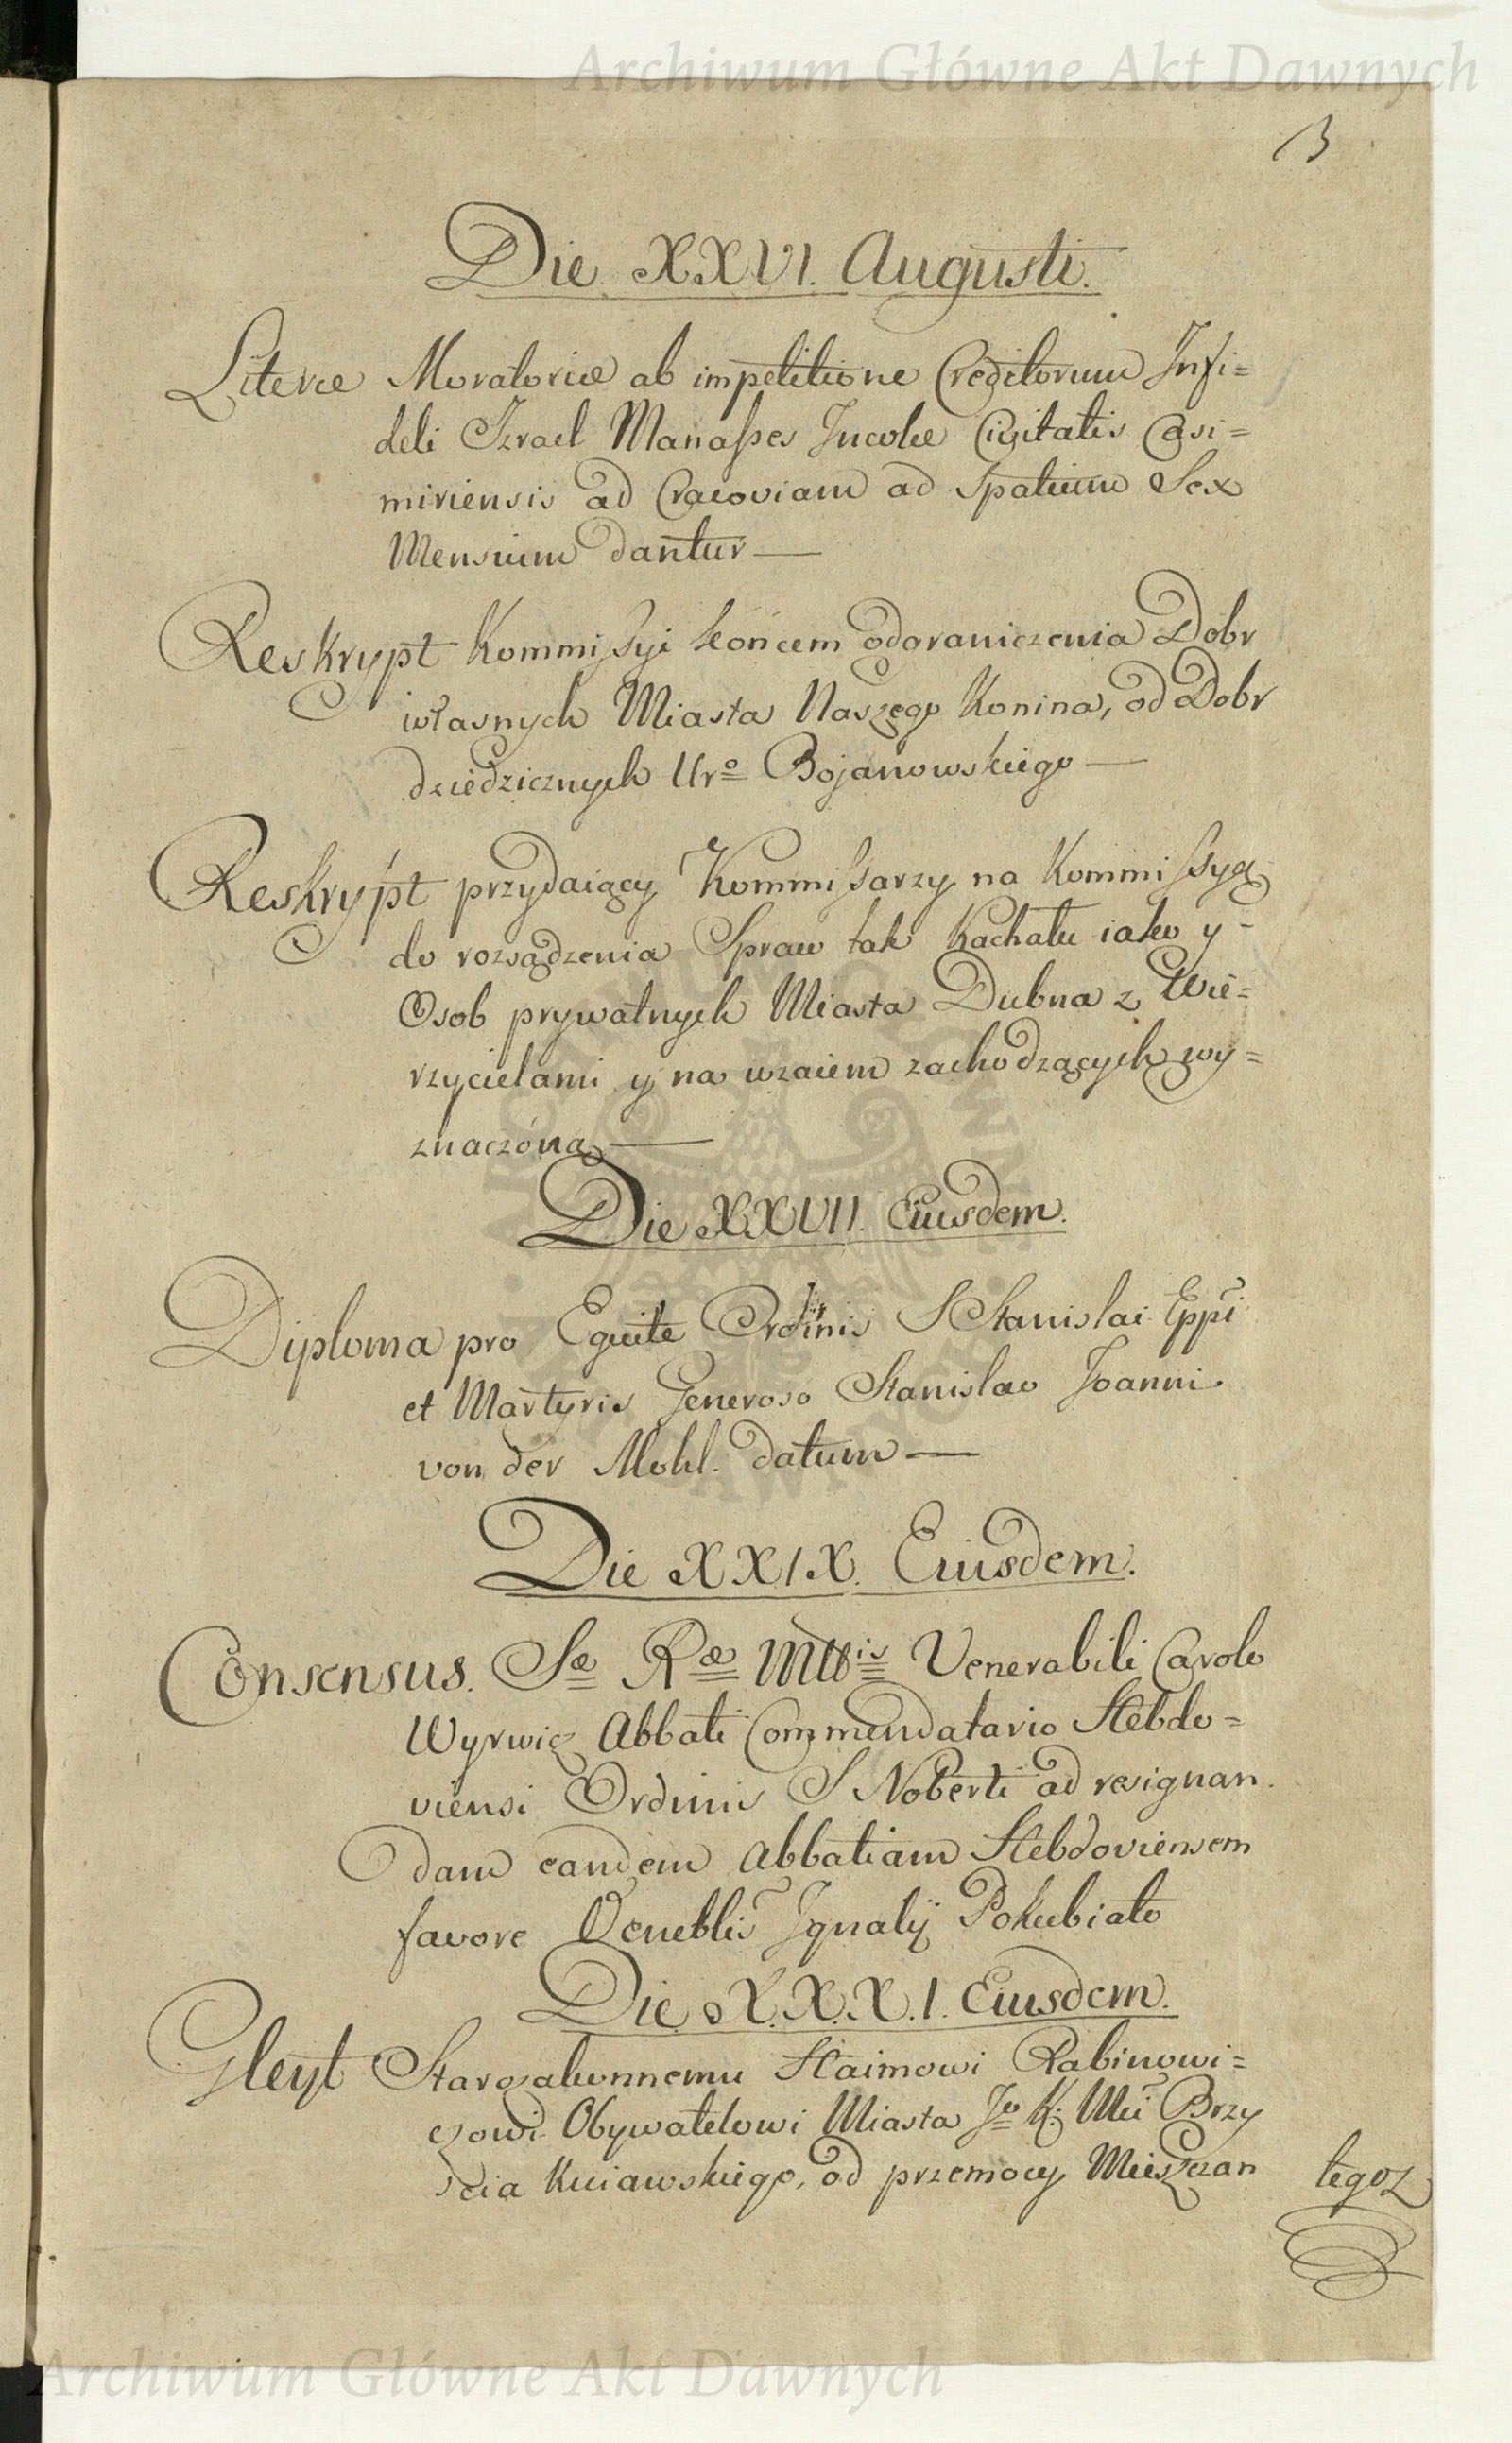 Archiwum Główne Akt Dawnych
13
Die XXVI. Augusti.
Literæ Moratoriæ ab impetitione Creditorum Infi=
deli Izrael Manasses Incolæ Civitatis Casi=
miriensis ad Cracoviam ad Spatium Sex
Mensium dantur —
Reskrypt Kommissyi końcem odgraniczenia Dobr
własnych Miasta Naszego Konina, od Dobr
dziedzicznych Uro Bojanowskiego —
Reskrypt przydaiący Kommissarzy na Kommissyą
do rozsądzenia Spraw tak Kachału iako y
Osob prywatnych Miasta Dubna z Wie=
rzycielami y na wzaiem zachodzących wy=
znaczoną —
Die XXVII. Eiusdem.
Diploma pro Equite Ordinis S Stanislai Eppi
et Martyris Generoso Stanislao Joanni
von der Mohl. datum —
Die XXIX. Eiusdem.
Consensus. Sæ Ræ Mttis Venerabili Carolo
Wyrwicz Abbati Commendatario Hebdo=
viensi Ordinis S Noberti ad resignan
dam eandem Abbatiam Hebdoviensem
favore Veneblis Ignatij Pokubiato
Die X.X.X.I. Eiusdem.
Gleyt Starozakonnemu Haimowi Rabinowi=
czowi Obywatelowi Miasta Jo K. Mci Brzy
ścia Kuiawskiego, od przemocy Mieszczan
tegoż
Archiwum Główne Akt Dawnych